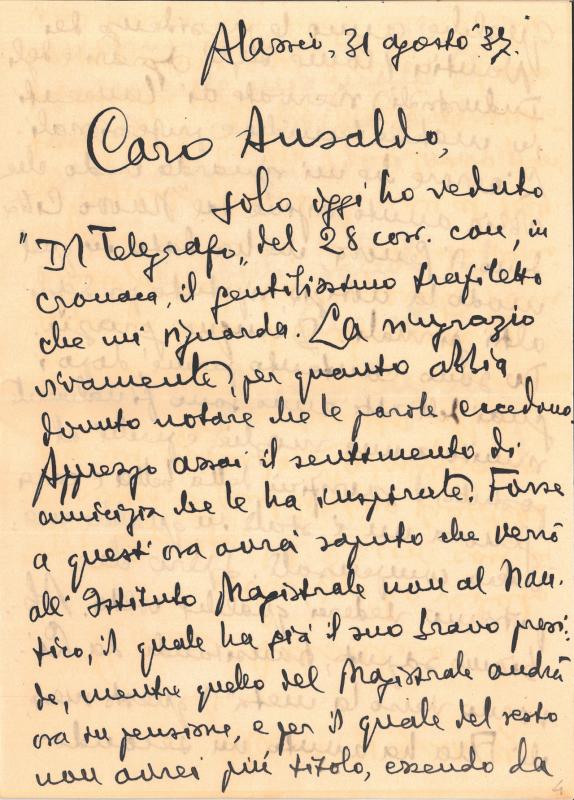 Alassio, 31 agosto '37.
Caro Ansaldo,
solo oggi ho veduto
"Il Telegrafo„ del 28 corr. con, in
cronaca, il gentilissimo trafiletto
che mi riguarda. La ringrazio
vivamente, per quanto abbia
dovuto notare che le parole eccedono.
Apprezzo assai il sentimento di
amicizia che le ha inspirate. Forse
a quest'ora avrà saputo che verrò
all'Istituto Magistrale non al Nau-
tico, il quale ha già il suo bravo presi-
de, mentre quello del Magistrale andrà
ora in pensione, e per il quale del resto
non avrei più titolo, essendo da
4